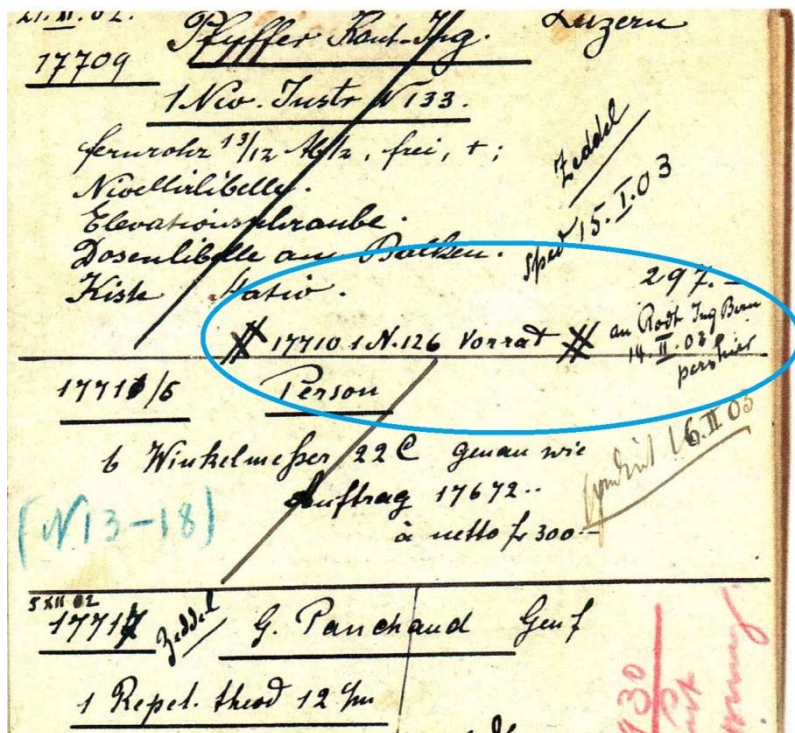 21.XI.02.
Pfyffer Kant-Ing. Luzern
17709
1 Niv. Instr N 133.
fernrohr 13/12 frei, +;
Nivellirlibelle.
Elevationsschraube.
Dosenlibelle am Balken.
Kiste Stativ.
Zeddel
Sped 15.I.03
297.-
17710 1 N.126 Vorrat
an Rodt Ing Bern
14.II.03
pershier
17711/6 Person
6 Winkelmesser 22 C genau wie
Auftrag 17672..
à netto fr 300.-
16.II 03
(N13-18)
5 XII 02
17717 Zeddel G. Panchaud Genf
1 Repet. theod 12 c/m
930